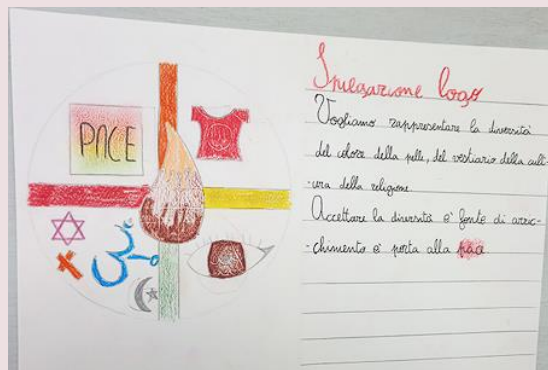 PACE
Spiegazione logo
Vogliamo rappresentare la diversità
del colore della pelle, del vestiario della cult-
-ura della religione.
Accettare la diversità è fonte di arric-
-chimento e porta alla pace